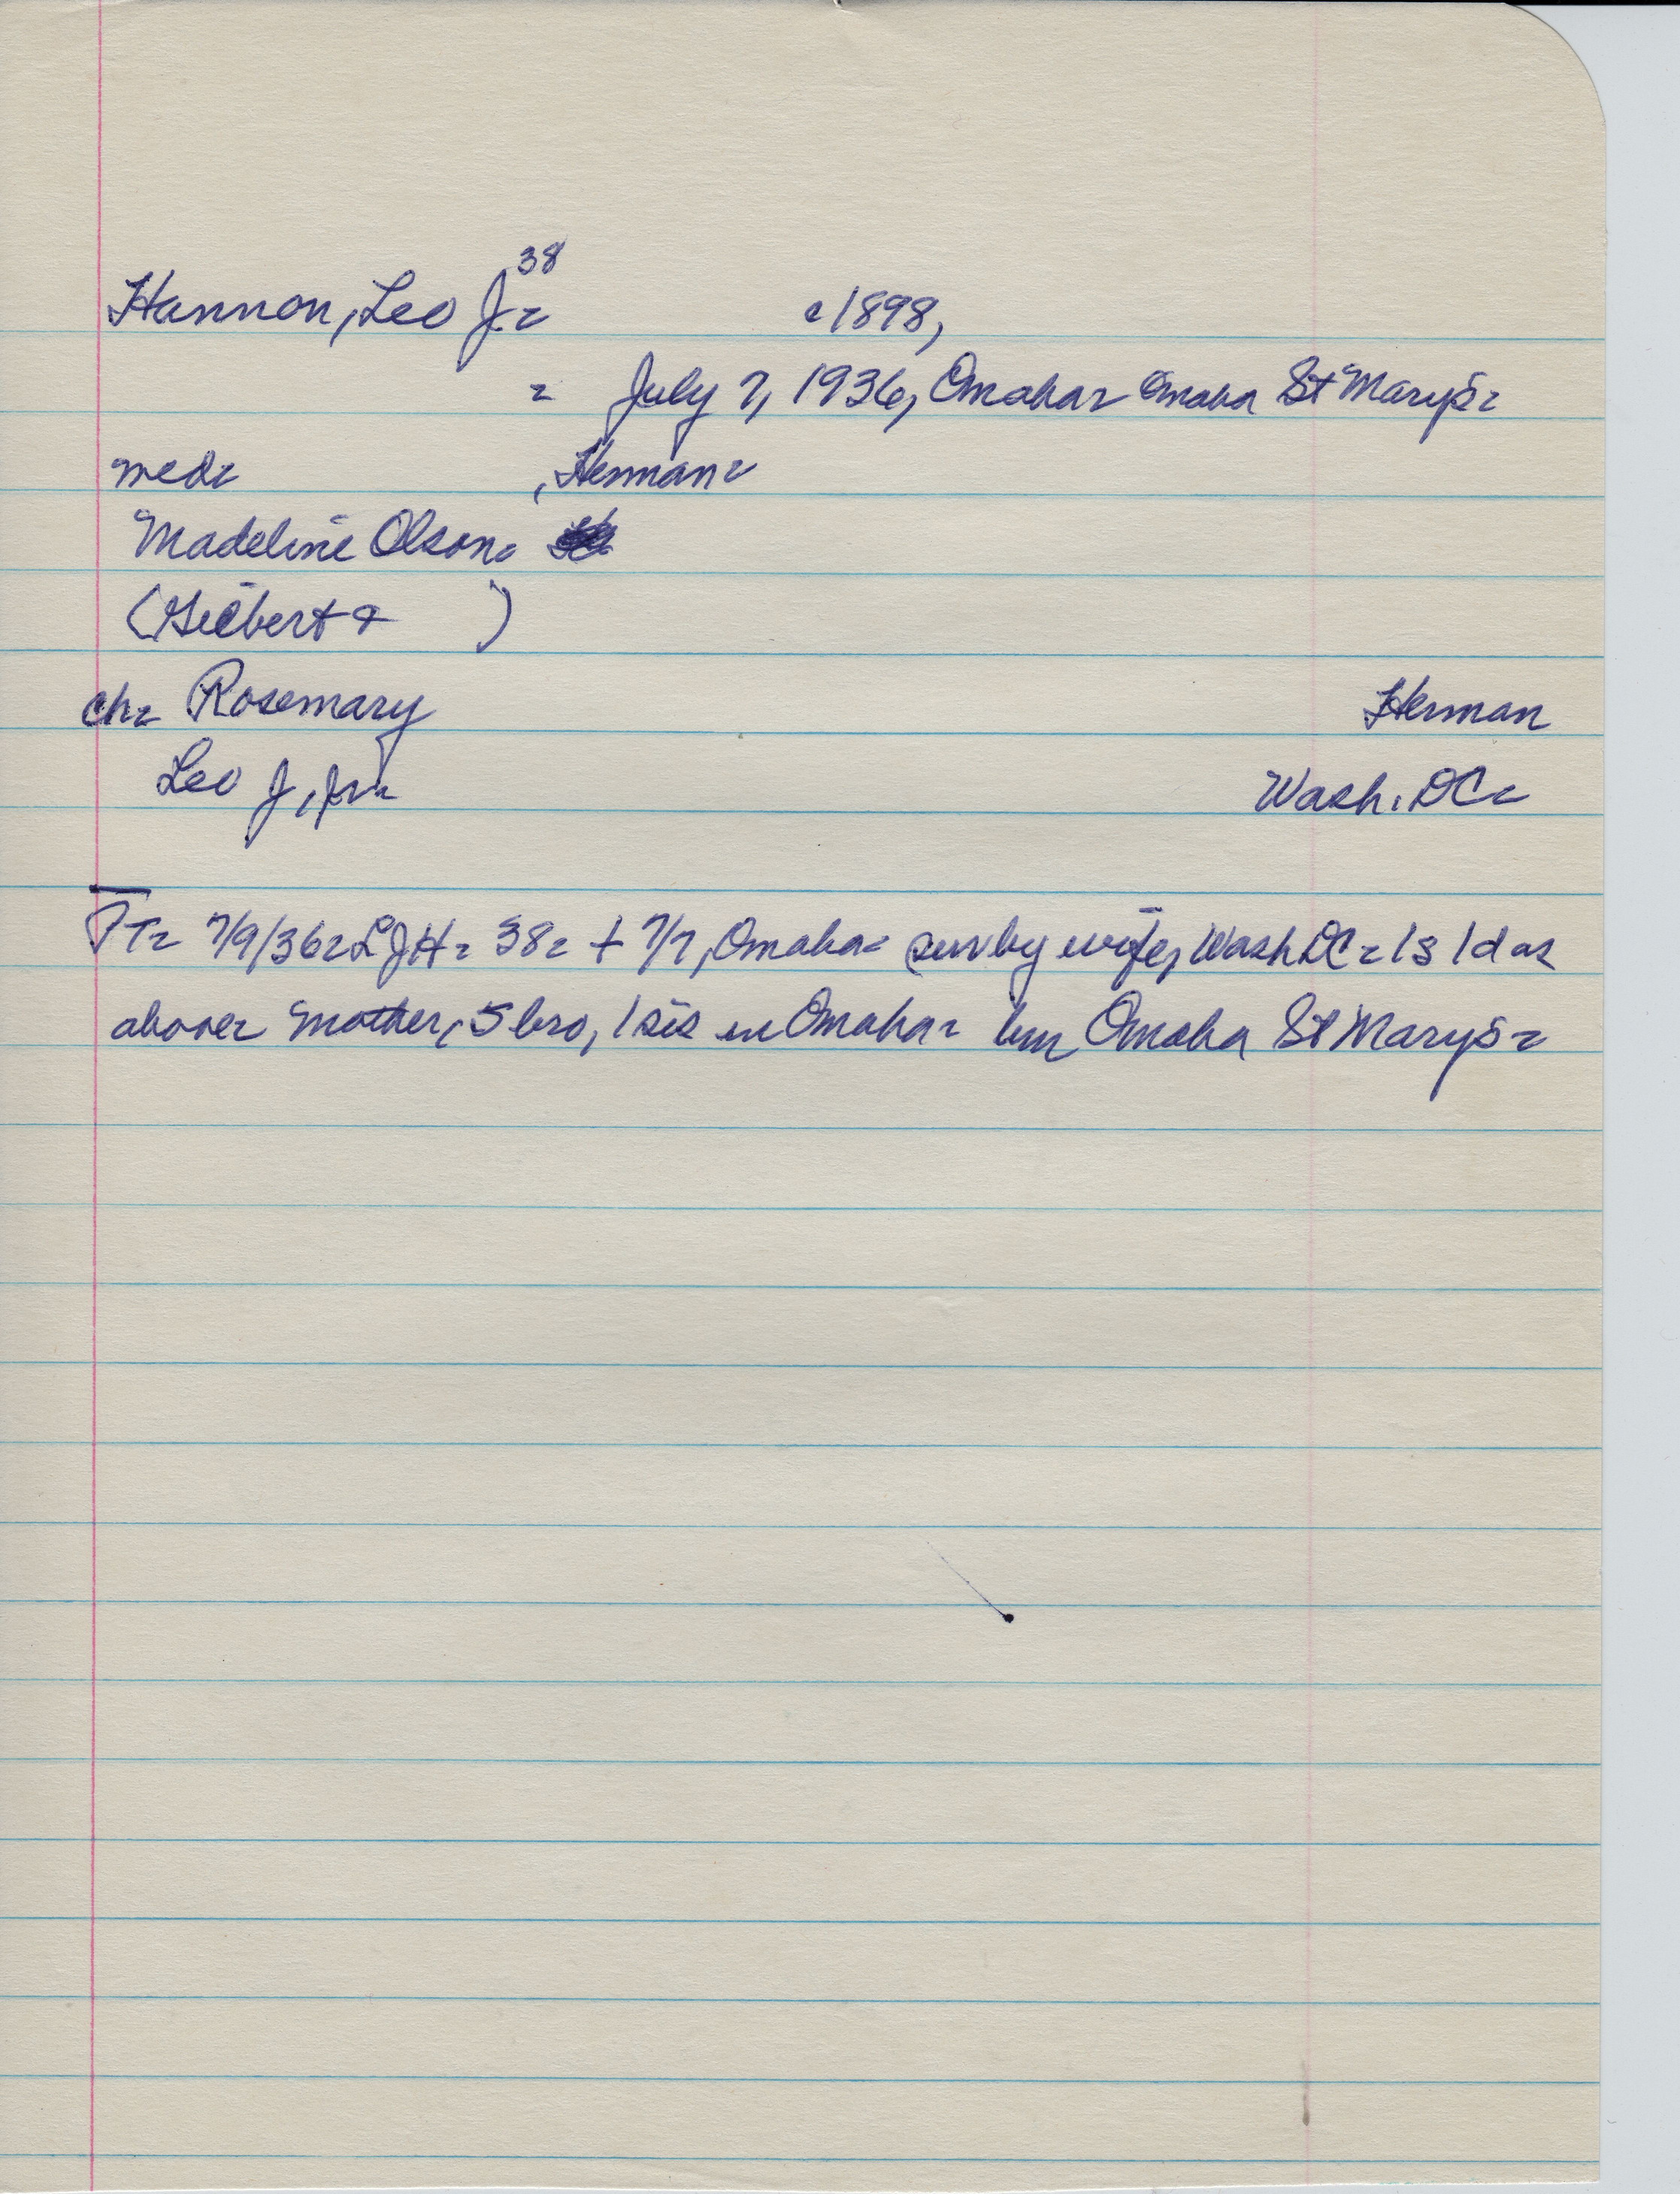 38
Hannon, Leo J. c1898,
July 7, 1936, Omaha Omaha St Mary's
wed , Herman
Madeline Olson
(Gilbert & )
ch Rosemary Herman
Leo J, Jr Wash. DC
7/9/36 LJH 38 + 7/7, Omaha surv by wife, Wash DC 1s 1d as
above mother, 5 bro, 1 sis in Omaha bur Omaha St Mary's